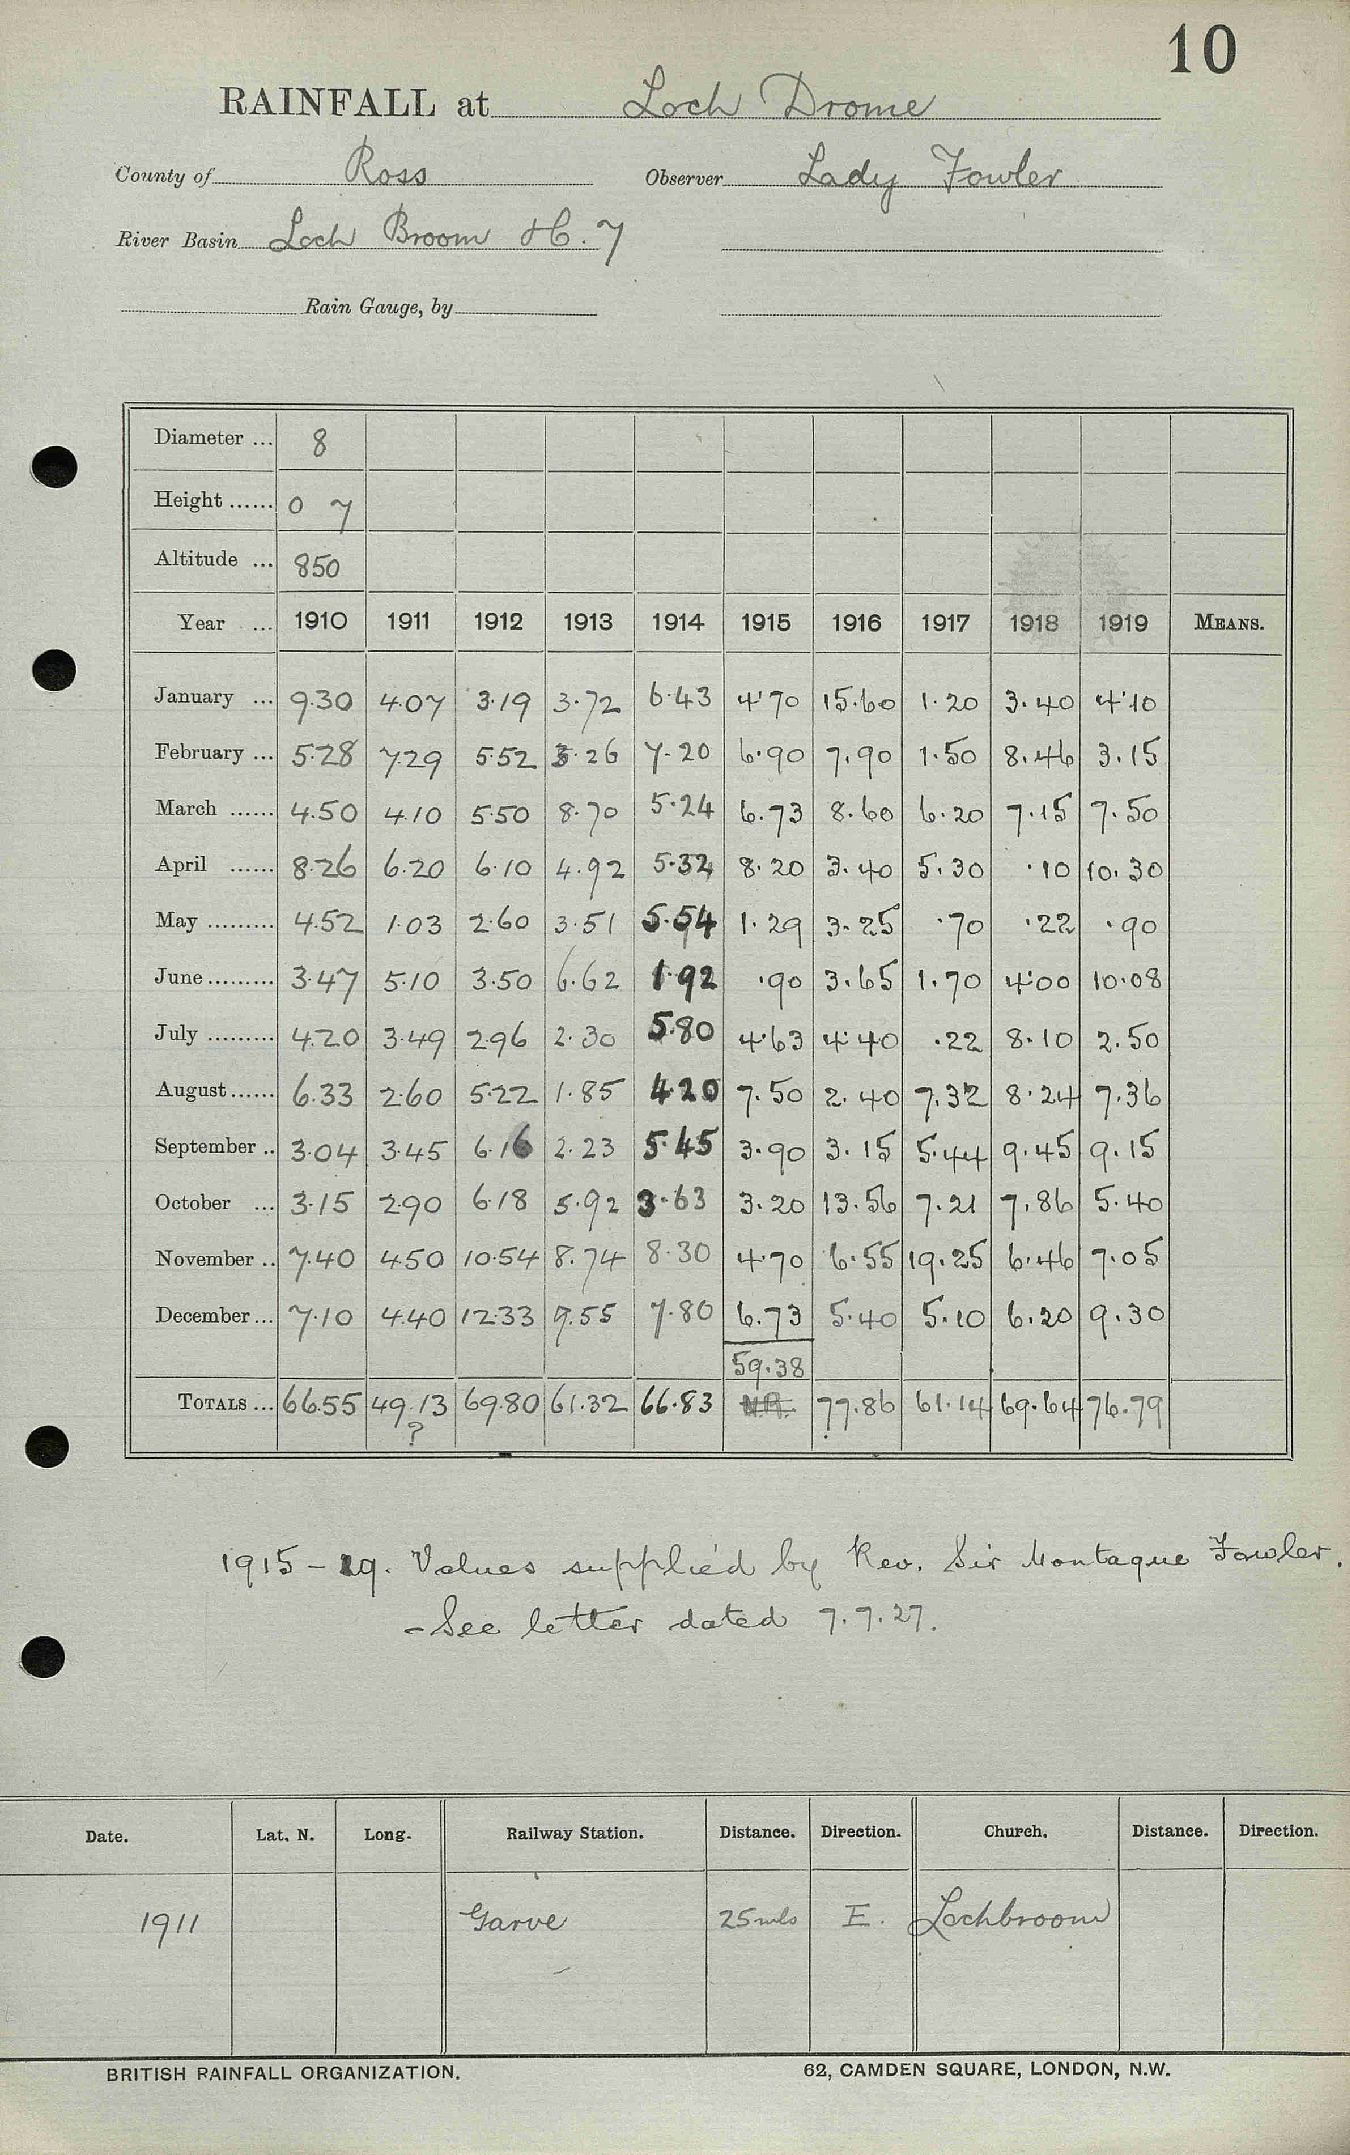 10
RAINFALL at Loch Drome
County of Ross Observer Lady Fowler
River Basin Loch Broom &C. 7
Rain Gauge, by
Diameter ... 8
Height ...... 0 7
Altitude ... 850
Year ... 1910 1911 1912 1913 1914 1915 1916 1917 1918 1919 MEANS.
January ... 9.30 4.07 3.19 3.72 6.43 4.70 15.60 1.20 3.40 4.10
February ... 5.28 7.29 5.52 3.26 7.20 6.90 7.90 1.50 8.46 3.15
March ...... 4.50 4.10 5.50 8.70 5.24 6.73 8.60 6.20 7.15 7.50
April ...... 8.26 6.20 6.10 4.92 5.32 8.20 3.40 5.30 .10 10.30
May ......... 4.52 1.03 2.60 3.51 5.54 1.29 3.25 .70 .22 .90
June ......... 3.47 5.10 3.50 6.62 1.92 .90 3.65 1.70 4.00 10.08
July ......... 4.20 3.49 2.96 2.30 5.80 4.63 4.40 .22 8.10 2.50
August ...... 6.33 2.60 5.22 1.85 4.20 7.50 2.40 7.32 8.24 7.36
September .. 3.04 3.45 6.16 2.23 5.45 3.90 3.15 5.44 9.45 9.15
October ... 3.15 2.90 6.18 5.92 3.63 3.20 13.56 7.21 7.86 5.40
November .. 7.40 4.50 10.54 8.74 8.30 4.70 6.55 19.25 6.46 7.05
December ... 7.10 4.40 12.33 9.55 7.80 6.73 5.40 5.10 6.20 9.30
59.38
TOTALS ... 66.55 49.13 69.80 61.32 66.83 77.86 61.14 69.64 76.79
?
1915 - 19. Values supplied by Rev. Sir Montague Fowler.
- See letter dated 7.7.27.
Date. Lat. N. Long. Railway Station. Distance. Direction. Church. Distance. Direction.
1911 Garve 25 mls E. Lochbroom
BRITISH RAINFALL ORGANIZATION. 62, CAMDEN SQUARE, LONDON, N.W.